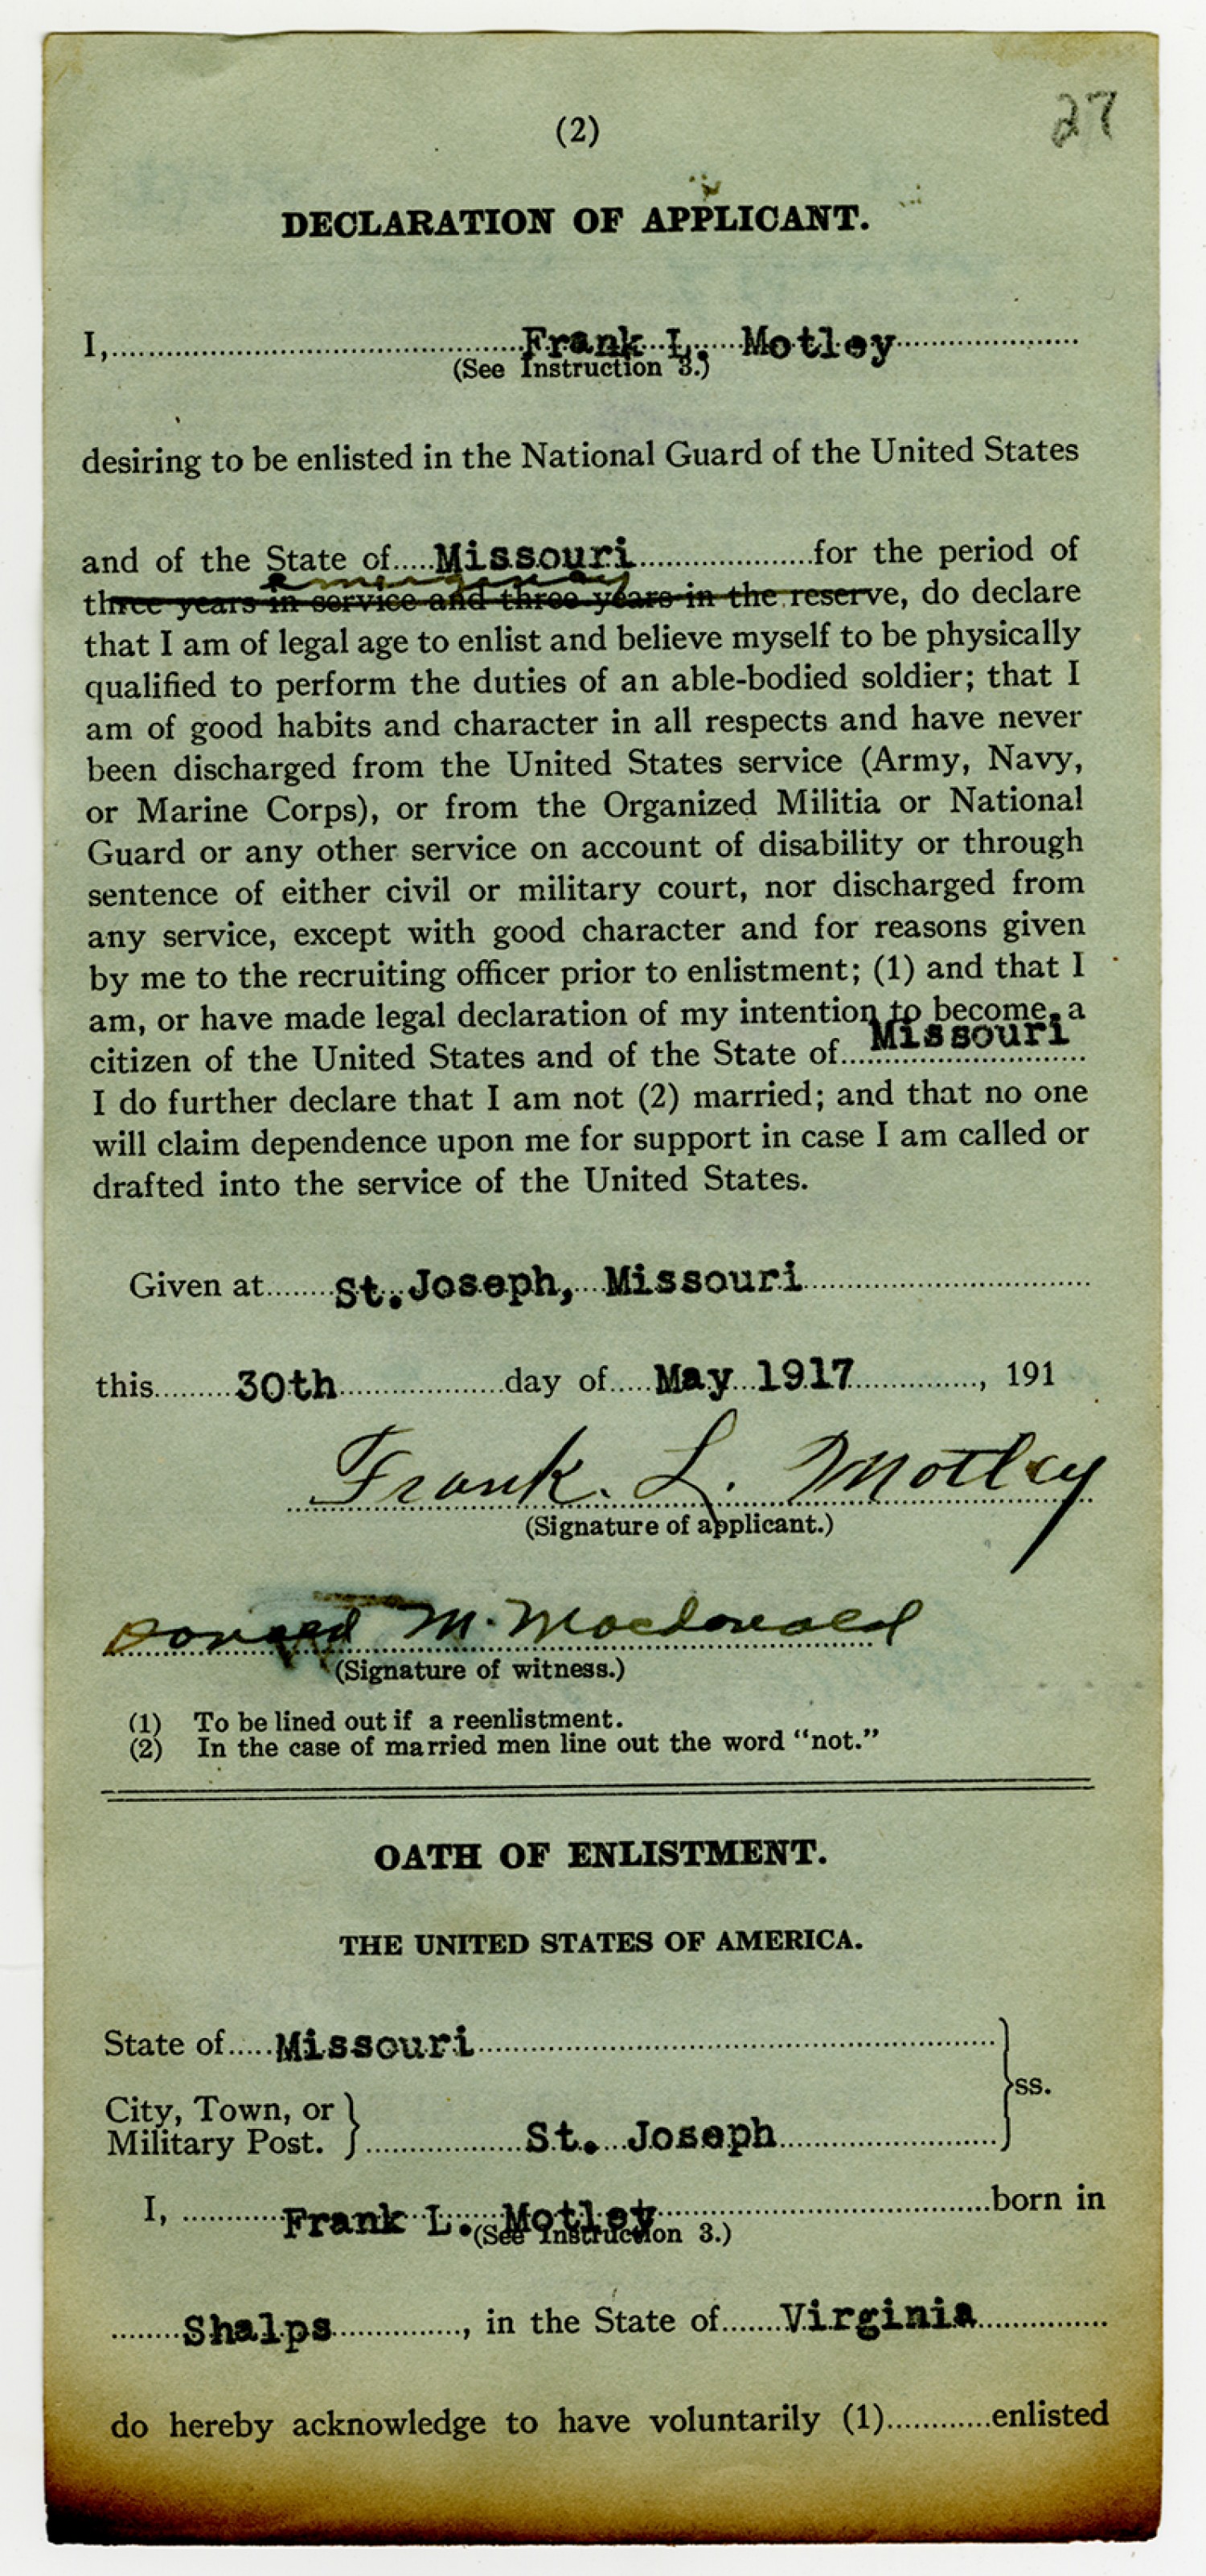 (2)
27
DECLARATION OF APPLICANT.
I, Frank L. Motley
(See Instruction 3.)
desiring to be enlisted in the National Guard of the United States
and of the State of Missouri for the period of
emergency
three years in service and three years in the reserve, do declare
that I am of legal age to enlist and believe myself to be physically
qualified to perform the duties of an able-bodied soldier; that I
am of good habits and character in all respects and have never
been discharged from the United States service (Army, Navy,
or Marine Corps), or from the Organized Militia or National
Guard or any other service on account of disability or through
sentence of either civil or military court, nor discharged from
any service, except with good character and for reasons given
by me to the recruiting officer prior to enlistment; (1) and that I
am, or have made legal declaration of my intention to become, a
citizen of the United States and of the State of Missouri
I do further declare that I am not (2) married; and that no one
will claim dependence upon me for support in case I am called or
drafted into the service of the United States.
Given at St. Joseph, Missouri
this 30th day of May 1917, 191
Frank. L. Motley
(Signature of applicant.)
Donald M. Macdonald
(Signature of witness.)
(1) To be lined out if a reenlistment.
(2) In the case of married men line out the word "not."
OATH OF ENLISTMENT.
THE UNITED STATES OF AMERICA.
State of Missouri
ss.
City, Town, or
Military Post. St. Joseph
I, Frank L. Motley born in
(See Instruction 3.)
Shalps, in the State of Virginia
do hereby acknowledge to have voluntarily (1) enlisted